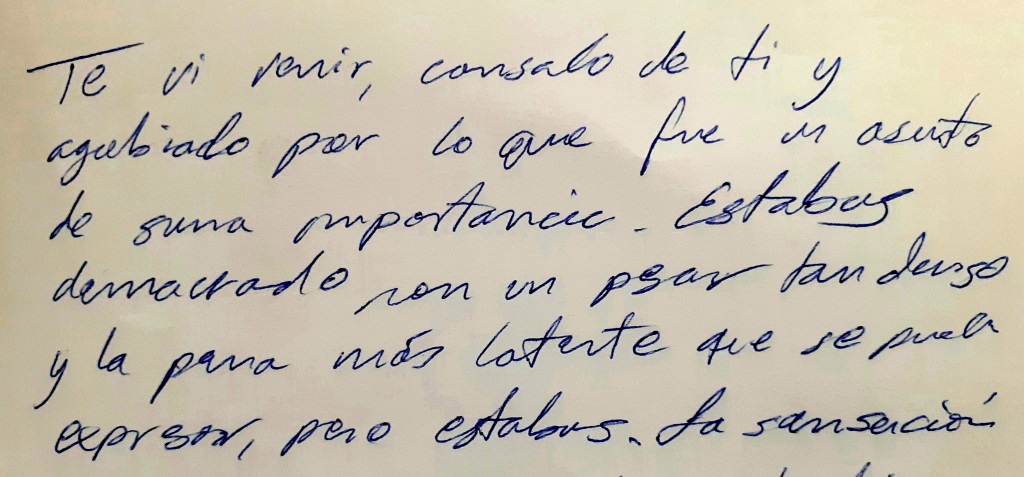 Te vi venir, cansado de ti y
agobiado por lo que fue un asunto
de suma importancia. Estabas
demacrado con un pesar tan denso
y la pena más latente que se pueda
expresar, pero estabas. La sensación